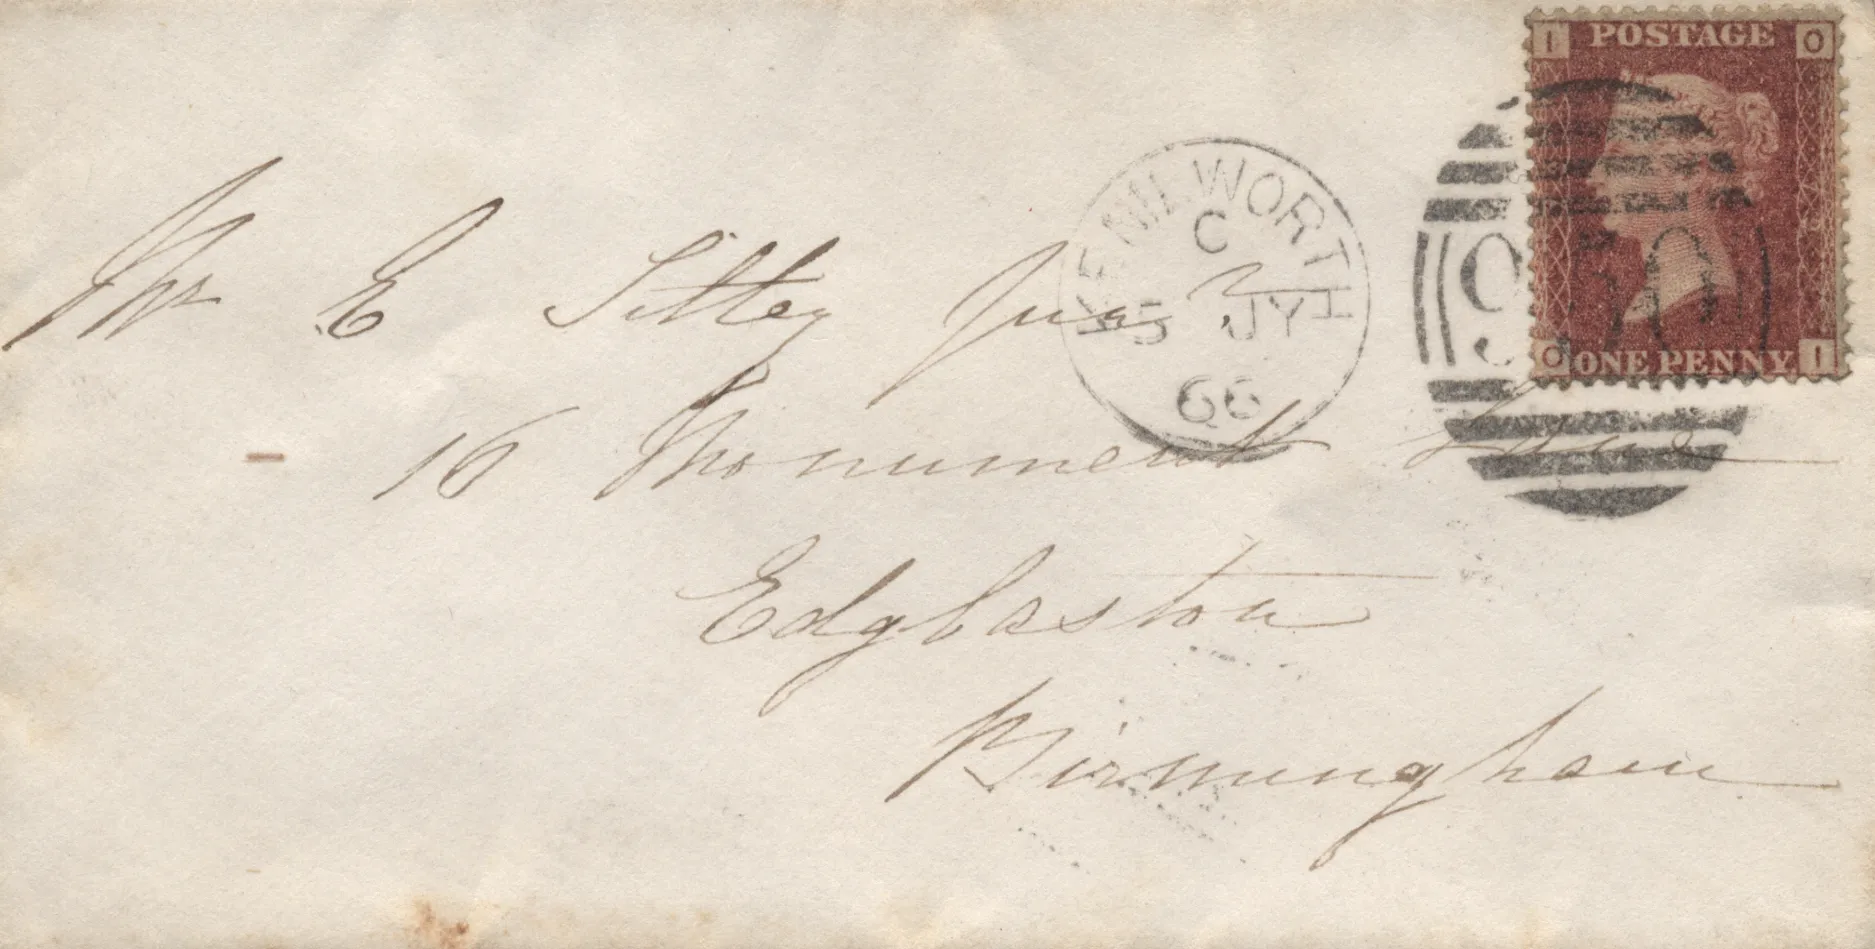 I POSTAGE O
O ONE PENNY. I
950
KENILWORTH
C
5 JY
66
Mr E Tilley Junr
16 Monument Lane
Edgbaston
Birmingham